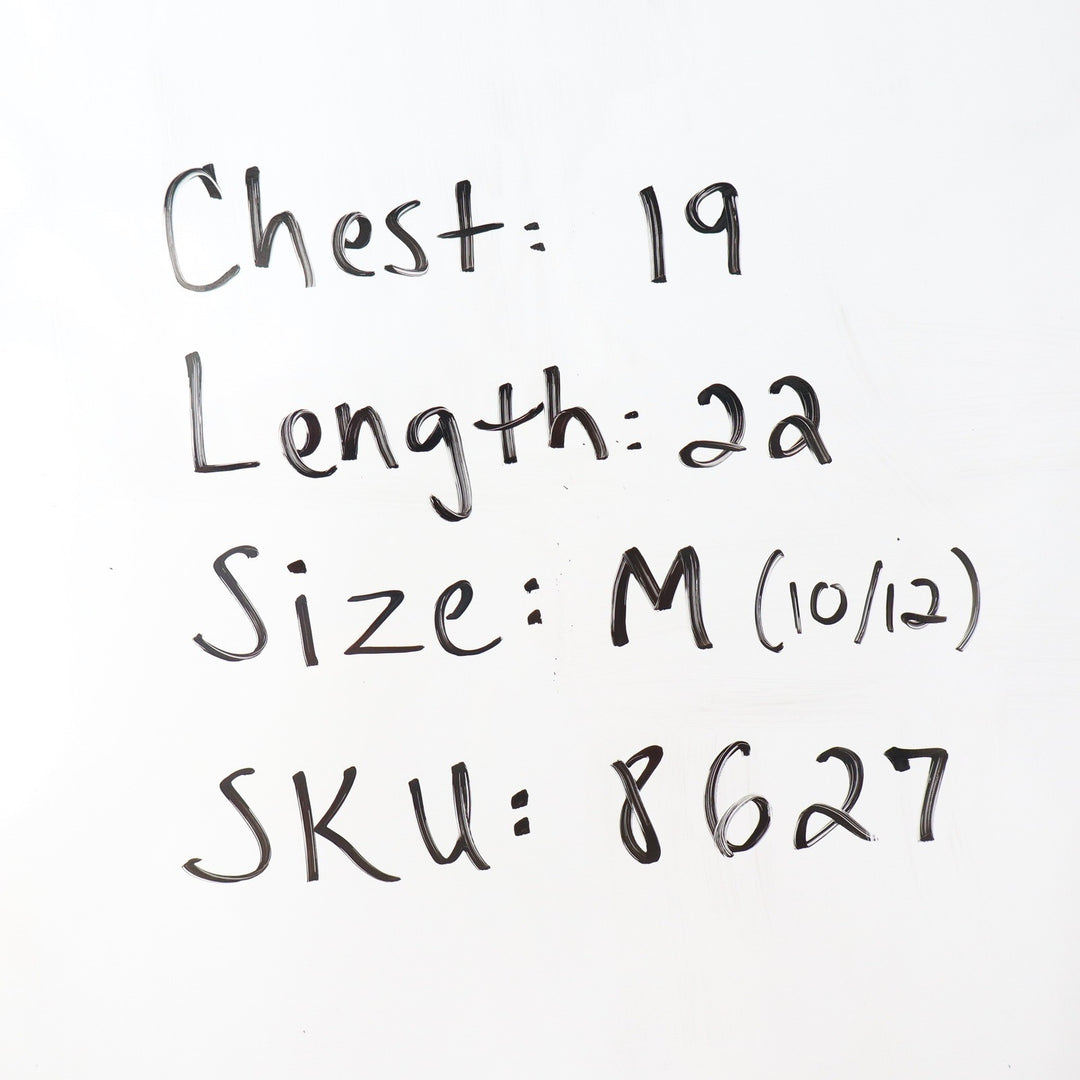 Chest: 19
Length: 22
Size: M (10/12)
SKU: 8627